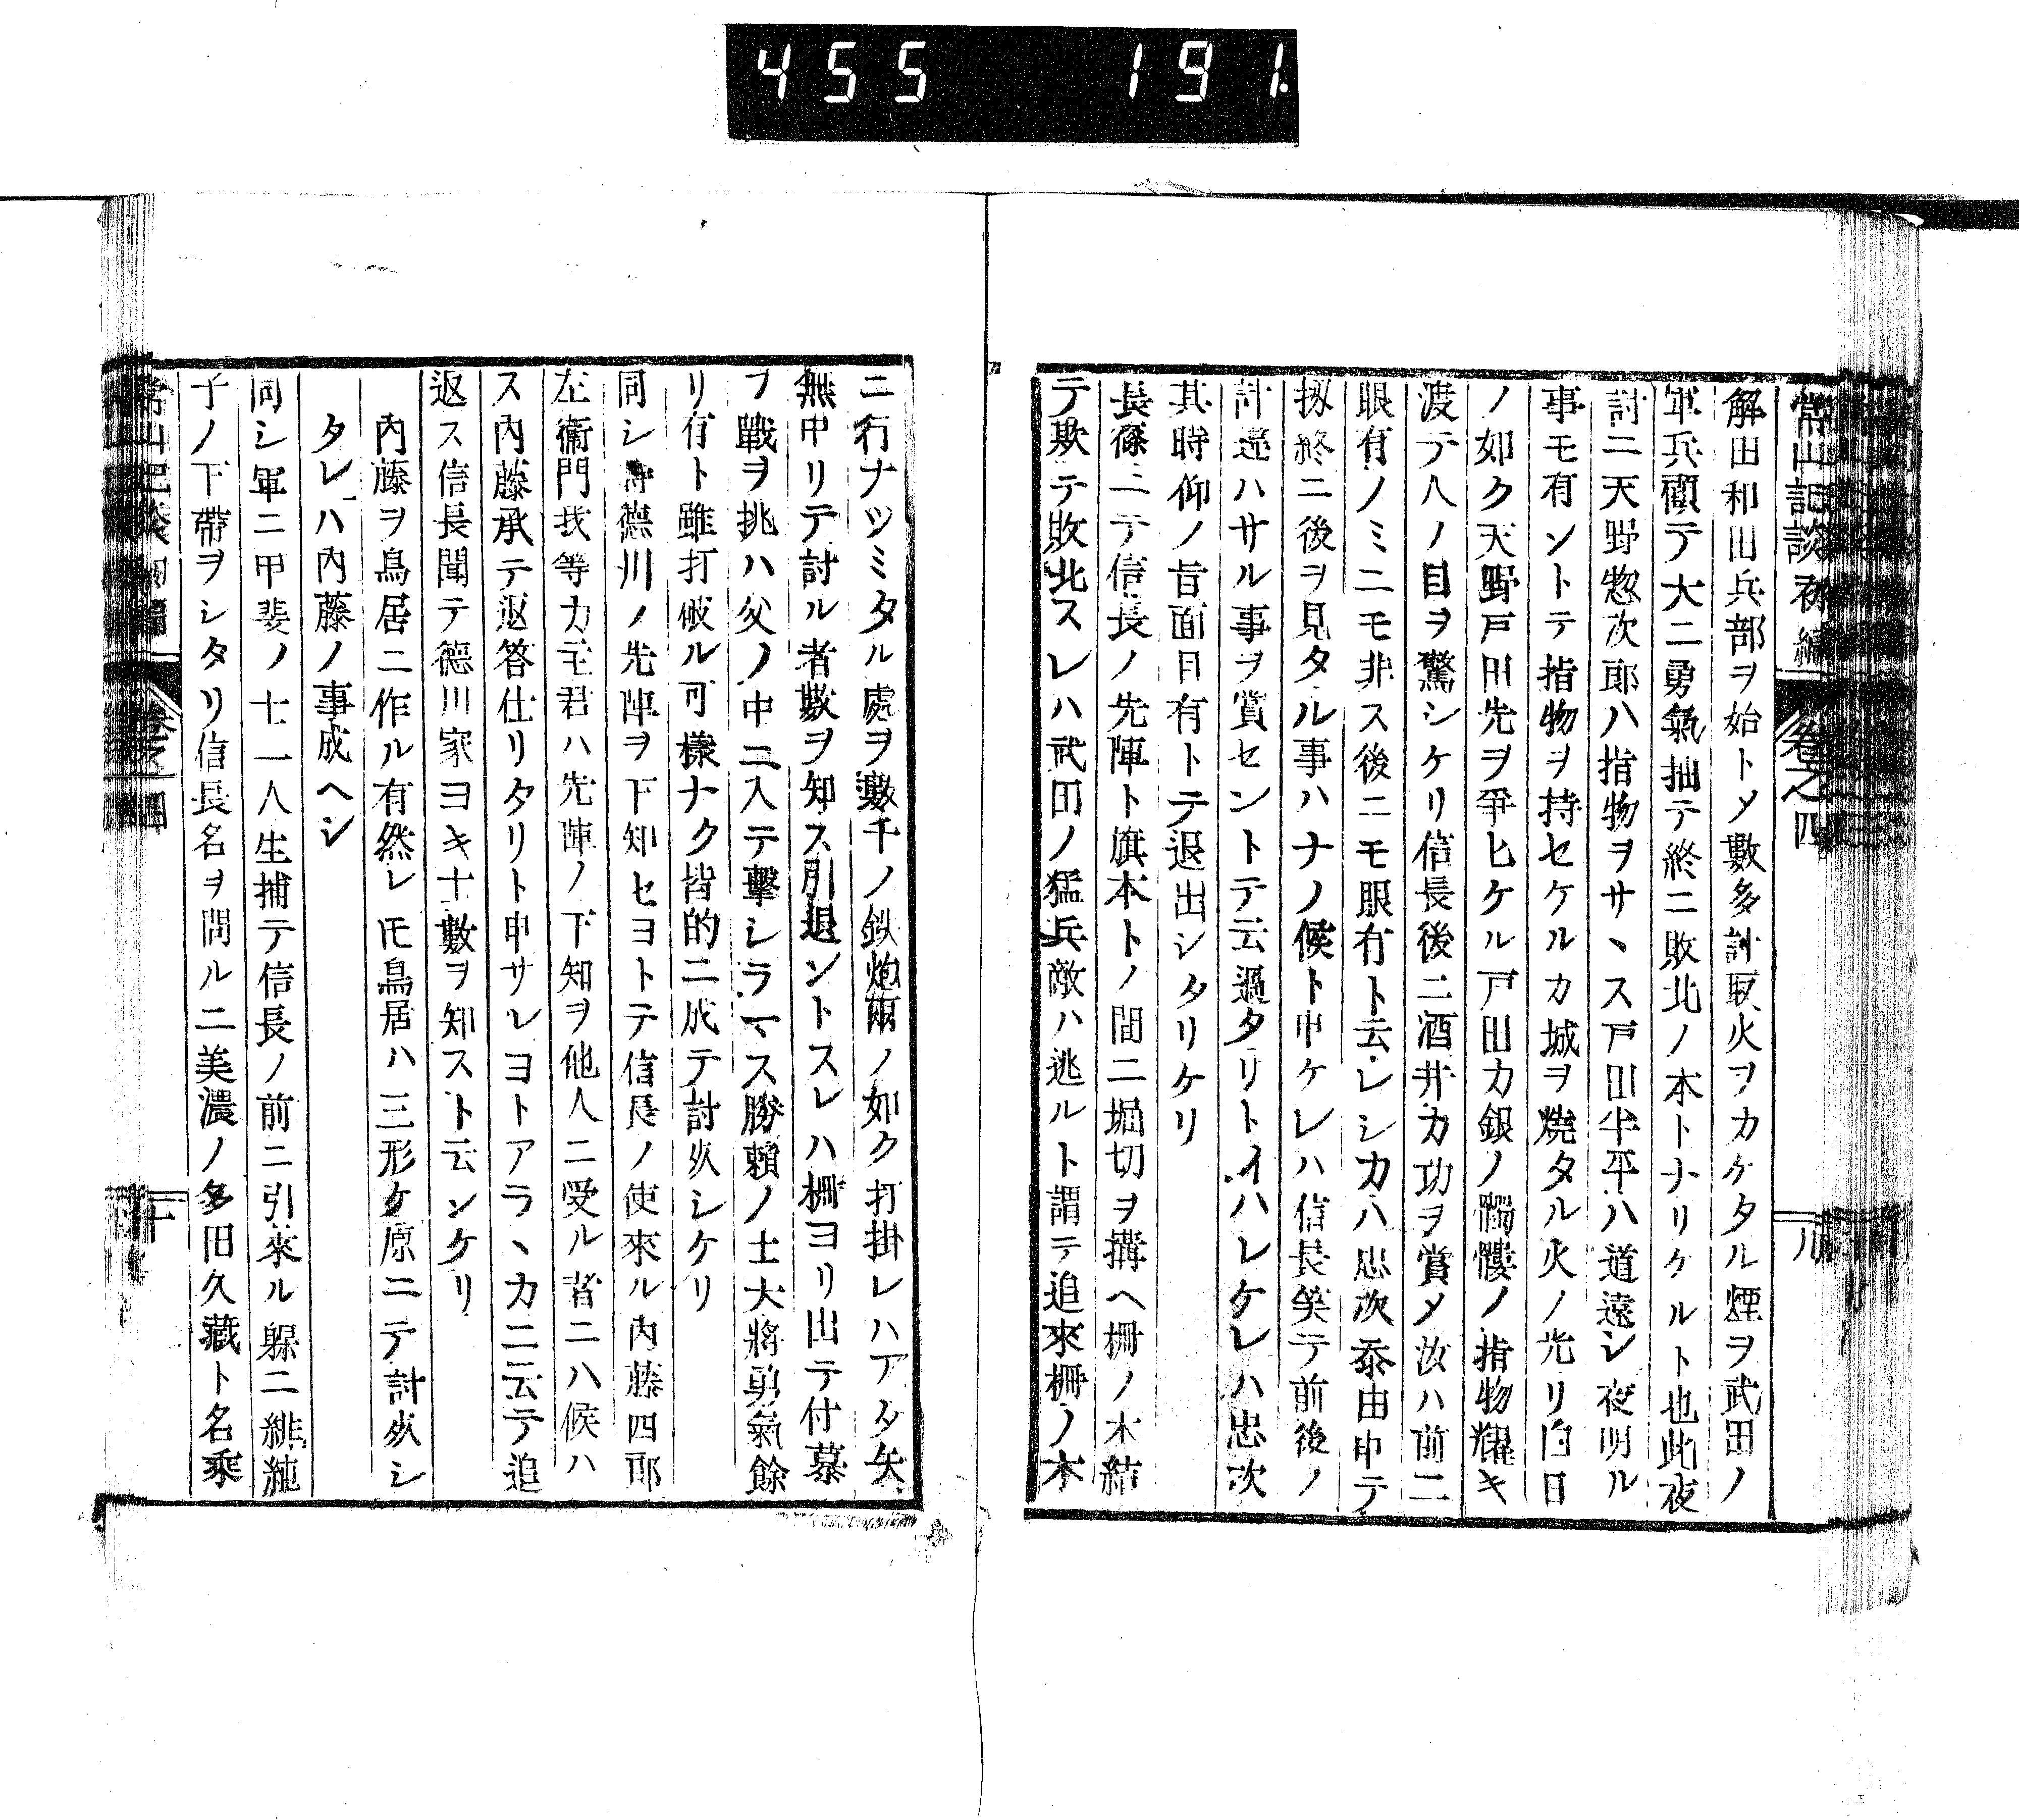 455 191
常山記談初編 卷之四 八
解田和田兵部ヲ始トメ數多討取火ヲカケタル煙ヲ武田ノ
軍兵顧テ大ニ勇氣拙テ終ニ敗北ノ本トナリケルト也此夜
討ニ天野惣次郎ハ指物ヲサヽス戸田半平ハ道遠シ夜明ル
事モ有ントテ指物ヲ持セケルカ城ヲ燒タル火ノ光リ白日
ノ如ク天野戸田先ヲ爭ヒケル戸田カ銀ノ髑髏ノ指物耀キ
渡テ人ノ目ヲ驚シケリ信長後ニ酒井カ功ヲ賞メ汝ハ前ニ
眼有ノミニモ非ス後ニモ眼有ト云レシカハ忠次忝由申テ
扨終ニ後ヲ見タル事ハナノ候ト申ケレハ信長笑テ前後ノ
計違ハサル事ヲ賞セントテ云過タリトイハレケレハ忠次
其時仰ノ旨面目有トテ退出シタリケリ
長篠ニテ信長ノ先陣ト旗本トノ間ニ堀切ヲ搆ヘ柵ノ木結
テ欺テ敗北スレハ武田ノ猛兵敵ハ逃ルト謂テ追來柵ノ木
ニ行ナツミタル處ヲ數千ノ鉄炮雨ノ如ク打掛レハアタ矢
無中リテ討ル者數ヲ知ス引退ントスレハ柵ヨリ出テ付慕
ヲ戰ヲ挑ハ父ノ中ニ入テ擊シラマス勝賴ノ士大將勇氣餘
リ有ト雖打破ル可樣ナク皆的ニ成テ討死シケリ
同シ時德川ノ先陣ヲ下知セヨトテ信長ノ使來ル內藤四郎
左衞門我等カ主君ハ先陣ノ下知ヲ他人ニ受ル者ニハ候ハ
ス內藤承テ返答仕リタリト申サレヨトアラヽカニ云テ追
返ス信長聞テ德川家ヨキ士數ヲ知スト云ンケリ
內藤ヲ鳥居ニ作ル有然レ𪜈鳥居ハ三形ケ原ニテ討死シ
タレハ內藤ノ事成ヘシ
同シ軍ニ甲斐ノ士一人生捕テ信長ノ前ニ引來ル躶ニ緋純
子ノ下帶ヲシタリ信長名ヲ問ルニ美濃ノ多田久藏ト名乘
常山記談初編 卷之四 十